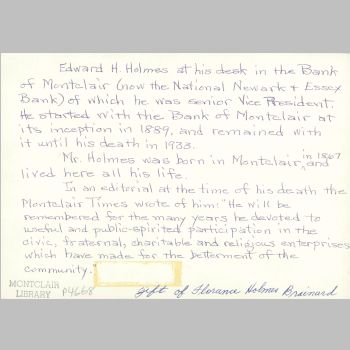 Edward H. Holmes at his desk in the Bank
of Montclair (now the National Newark & Essex
Bank) of which he was senior Vice President.
He started with the Bank of Montclair at
its inception in 1889, and remained with
it until his death in 1933.
Mr. Holmes was born in Montclair, in 1867 and
lived here all his life.
In an editorial at the time of his death the
Montclair Times wrote of him: "He will be
remembered for the many years he devoted to
useful and public-spirited participation in the
civic, fraternal, charitable and religious enterprises
which have made for the betterment of the
community.
MONTCLAIR
LIBRARY P4668
gift of Florance Holmes Brainard